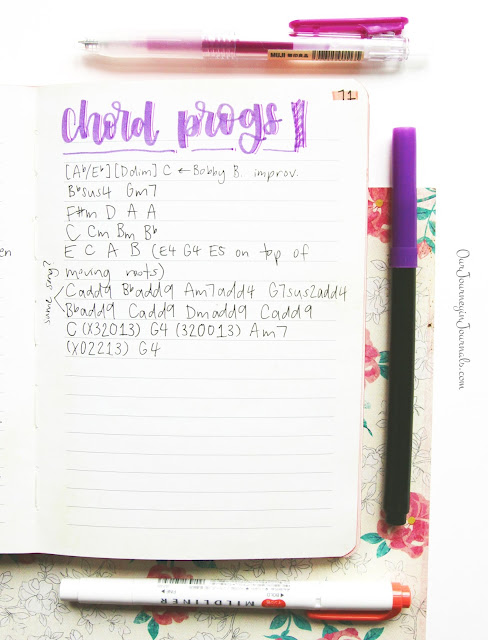 MUJI 無印良品
71
chord progs 1
[A♭/E♭] [Ddim] C ← Bobby B. improv.
B♭sus4 Gm7
F#m D A A
C Cm Bm B♭
E C A B (E4 G4 E5 on top of
moving roots)
same song?
Cadd9 B♭add9 Am7add4 G7sus2add4
B♭add9 Cadd9 Dmadd9 Cadd9
C (X32013) G4 (320013) Am7
(X02213) G4
en
OurJourneyinJournals.com
MILDLINER